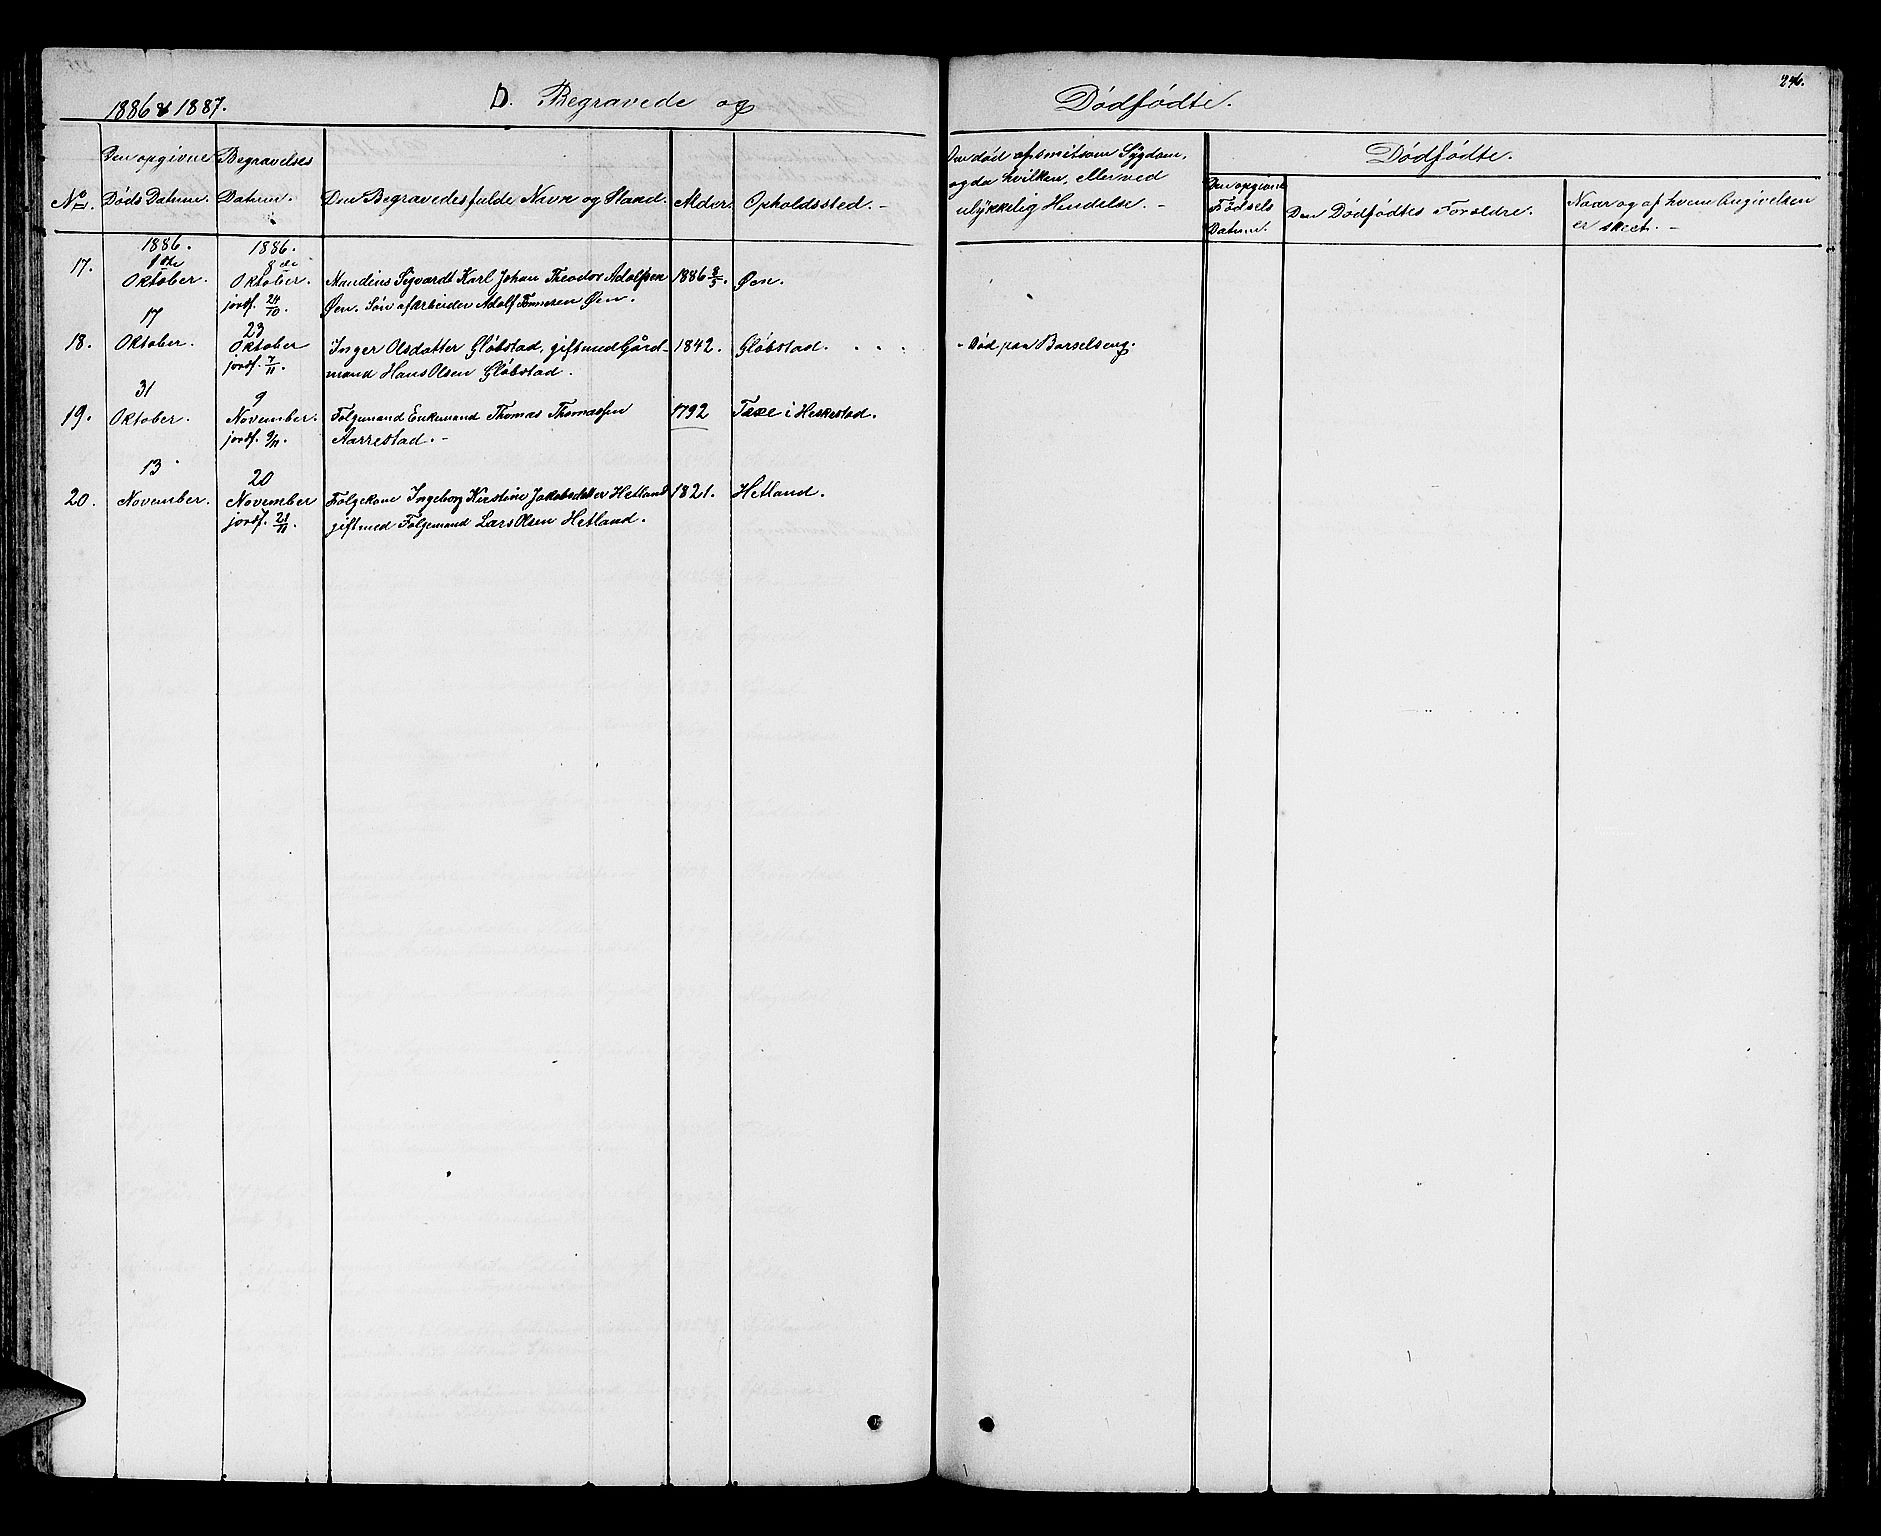 1886 & 1887.
D. Begravede og
Dødfødte.
246.
Den opgivne
Døds Datum.
Begravelses
Datum.
No.
Den Begravedes fulde Navn og Stand.
Alder.
Opholdssted.
Om død af smitsom Sygdom,
og da hvilken, eller ved
ulykkelig Hendelse. -
Dødfødte.
Den opgivne
Fødsels
Datum.
Den Dødfødtes Forældre.
Naar og af hvem Angivelsen
er skeet. -
1886.
1886.
17.
1ste
Oktober.
8de
Oktober.
jordf. 24/10.
Mandius Sigvardt Karl Johan Theodor Adolfsen
Øen. Søn af Arbeider Adolf Tønnesen Øen.
1886 8/5.
Øen.
18.
17
Oktober.
23
Oktober
jordf. 7/11.
Inger Olsdatter Gløbstad, gift med Gård-
mand Hans Olsen Gløbstad.
1842.
Gløbstad.
- Død paa Barselseng.
19.
31
Oktober.
9
November.
jordf. 9/11.
Folgemand Enkemand Thomas Thomassen
Aarrestad. -
1792
i Heskestad.
20.
13
November.
20
November
jordf. 21/11.
Folgekone Ingeborg Kirstine Jakobsdatter Hetland
gift med Folgemand Lars Olsen Hetland.
1821.
Hetland.